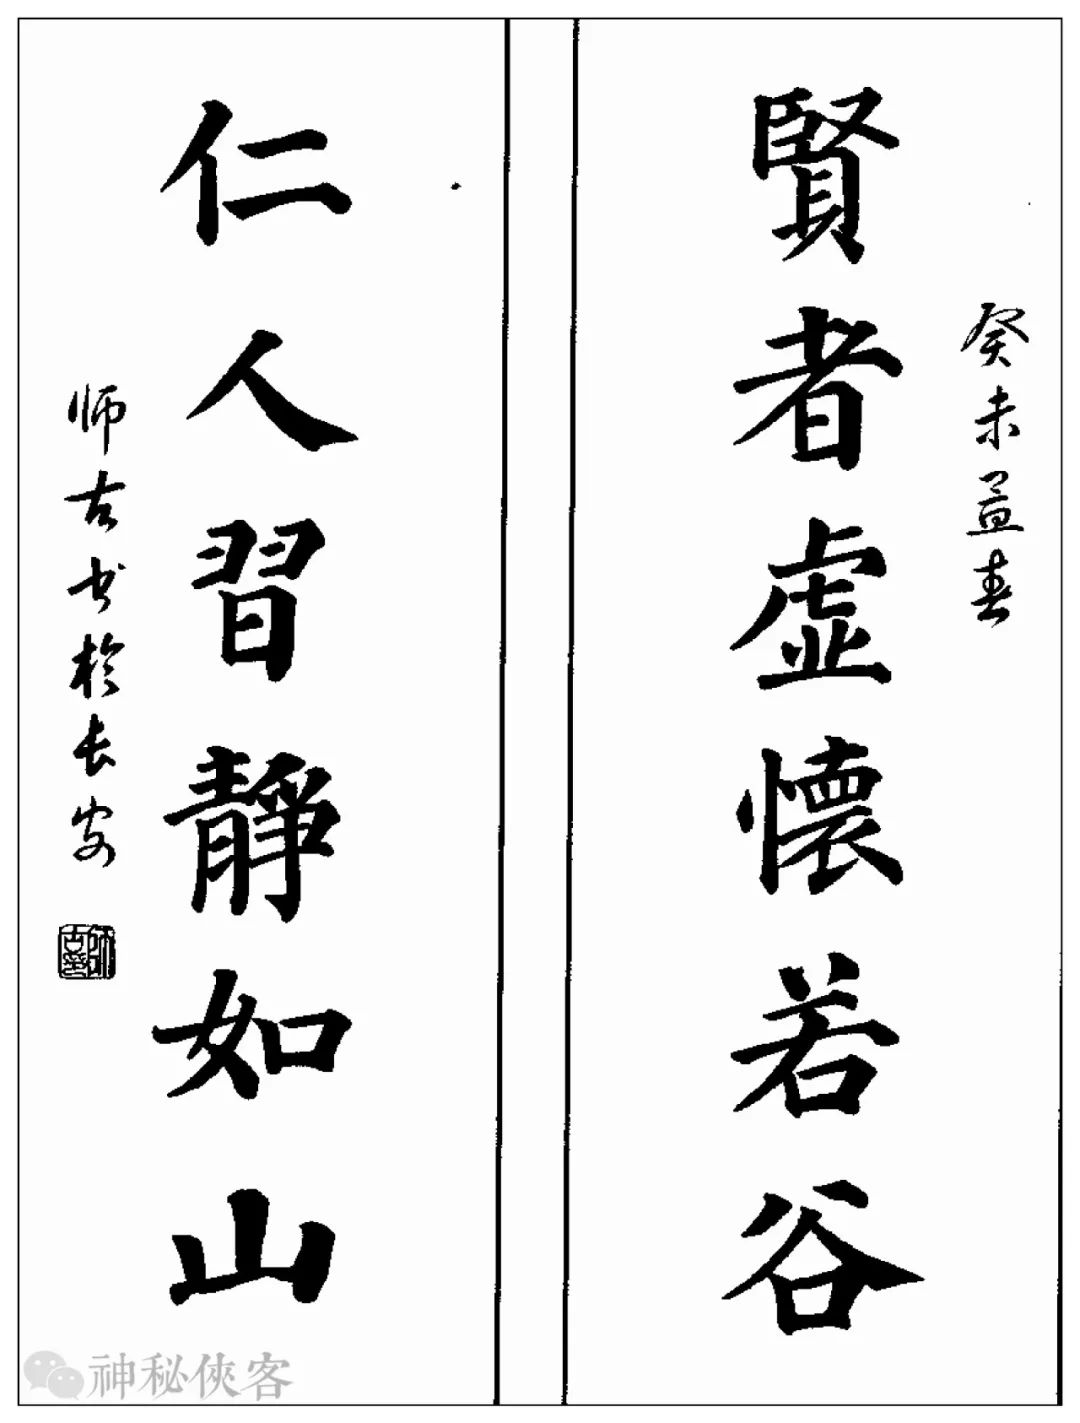 癸未孟春
賢者虚懷若谷
仁人習靜如山
师古书於长安
神秘侠客